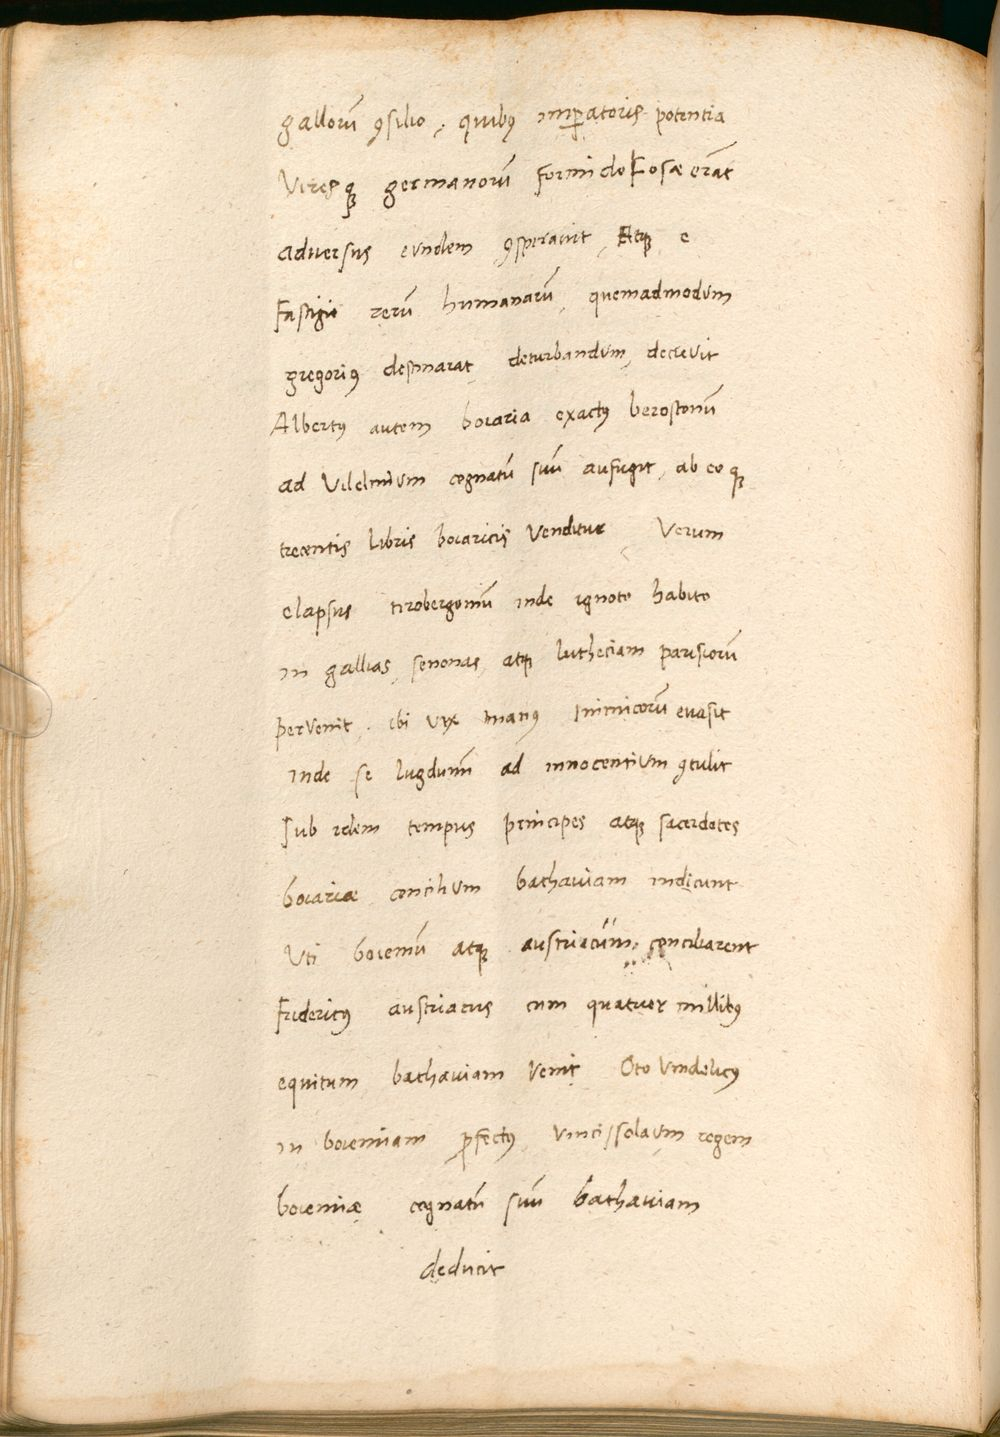 gallorū ꝯsilio, quibꝯ imꝑatoris potentia
Viresqꝫ germanorū formidolosæ erāt
adversus eundem ꝯspiravit, Atqꝫ e
Fastigio rerū humanarū, quemadmodum
gregoriꝯ destinarat, deturbandum, decrevit
Albertꝯ autem boiaria exactꝯ berostonū
ad Vilelmum cognatū suū aufugit, ab eo qꝫ
trecentis libris boiaricis Venditur, Verum
elapsus tirobergomū inde ignoto habito
in gallias, senonas, atqꝫ lutheciam parisiorū
pervenit. ibi vix manꝯ inimicorū evasit
inde se lugdunū ad innocentium ꝯtulit
Sub idem tempus principes atqꝫ sacerdotes
boiariæ concilium bathaviam indicunt
Uti boiemū atqꝫ austriacūm, conciliarent
Fridericꝯ austriacus cum quatuor millibꝯ
equitum bathaviam Venit Oto Vindelicꝯ
in boiemiam ꝓfectꝯ, vincisslaum regem
boiemiæ cognatū suū bathaviam
deducit